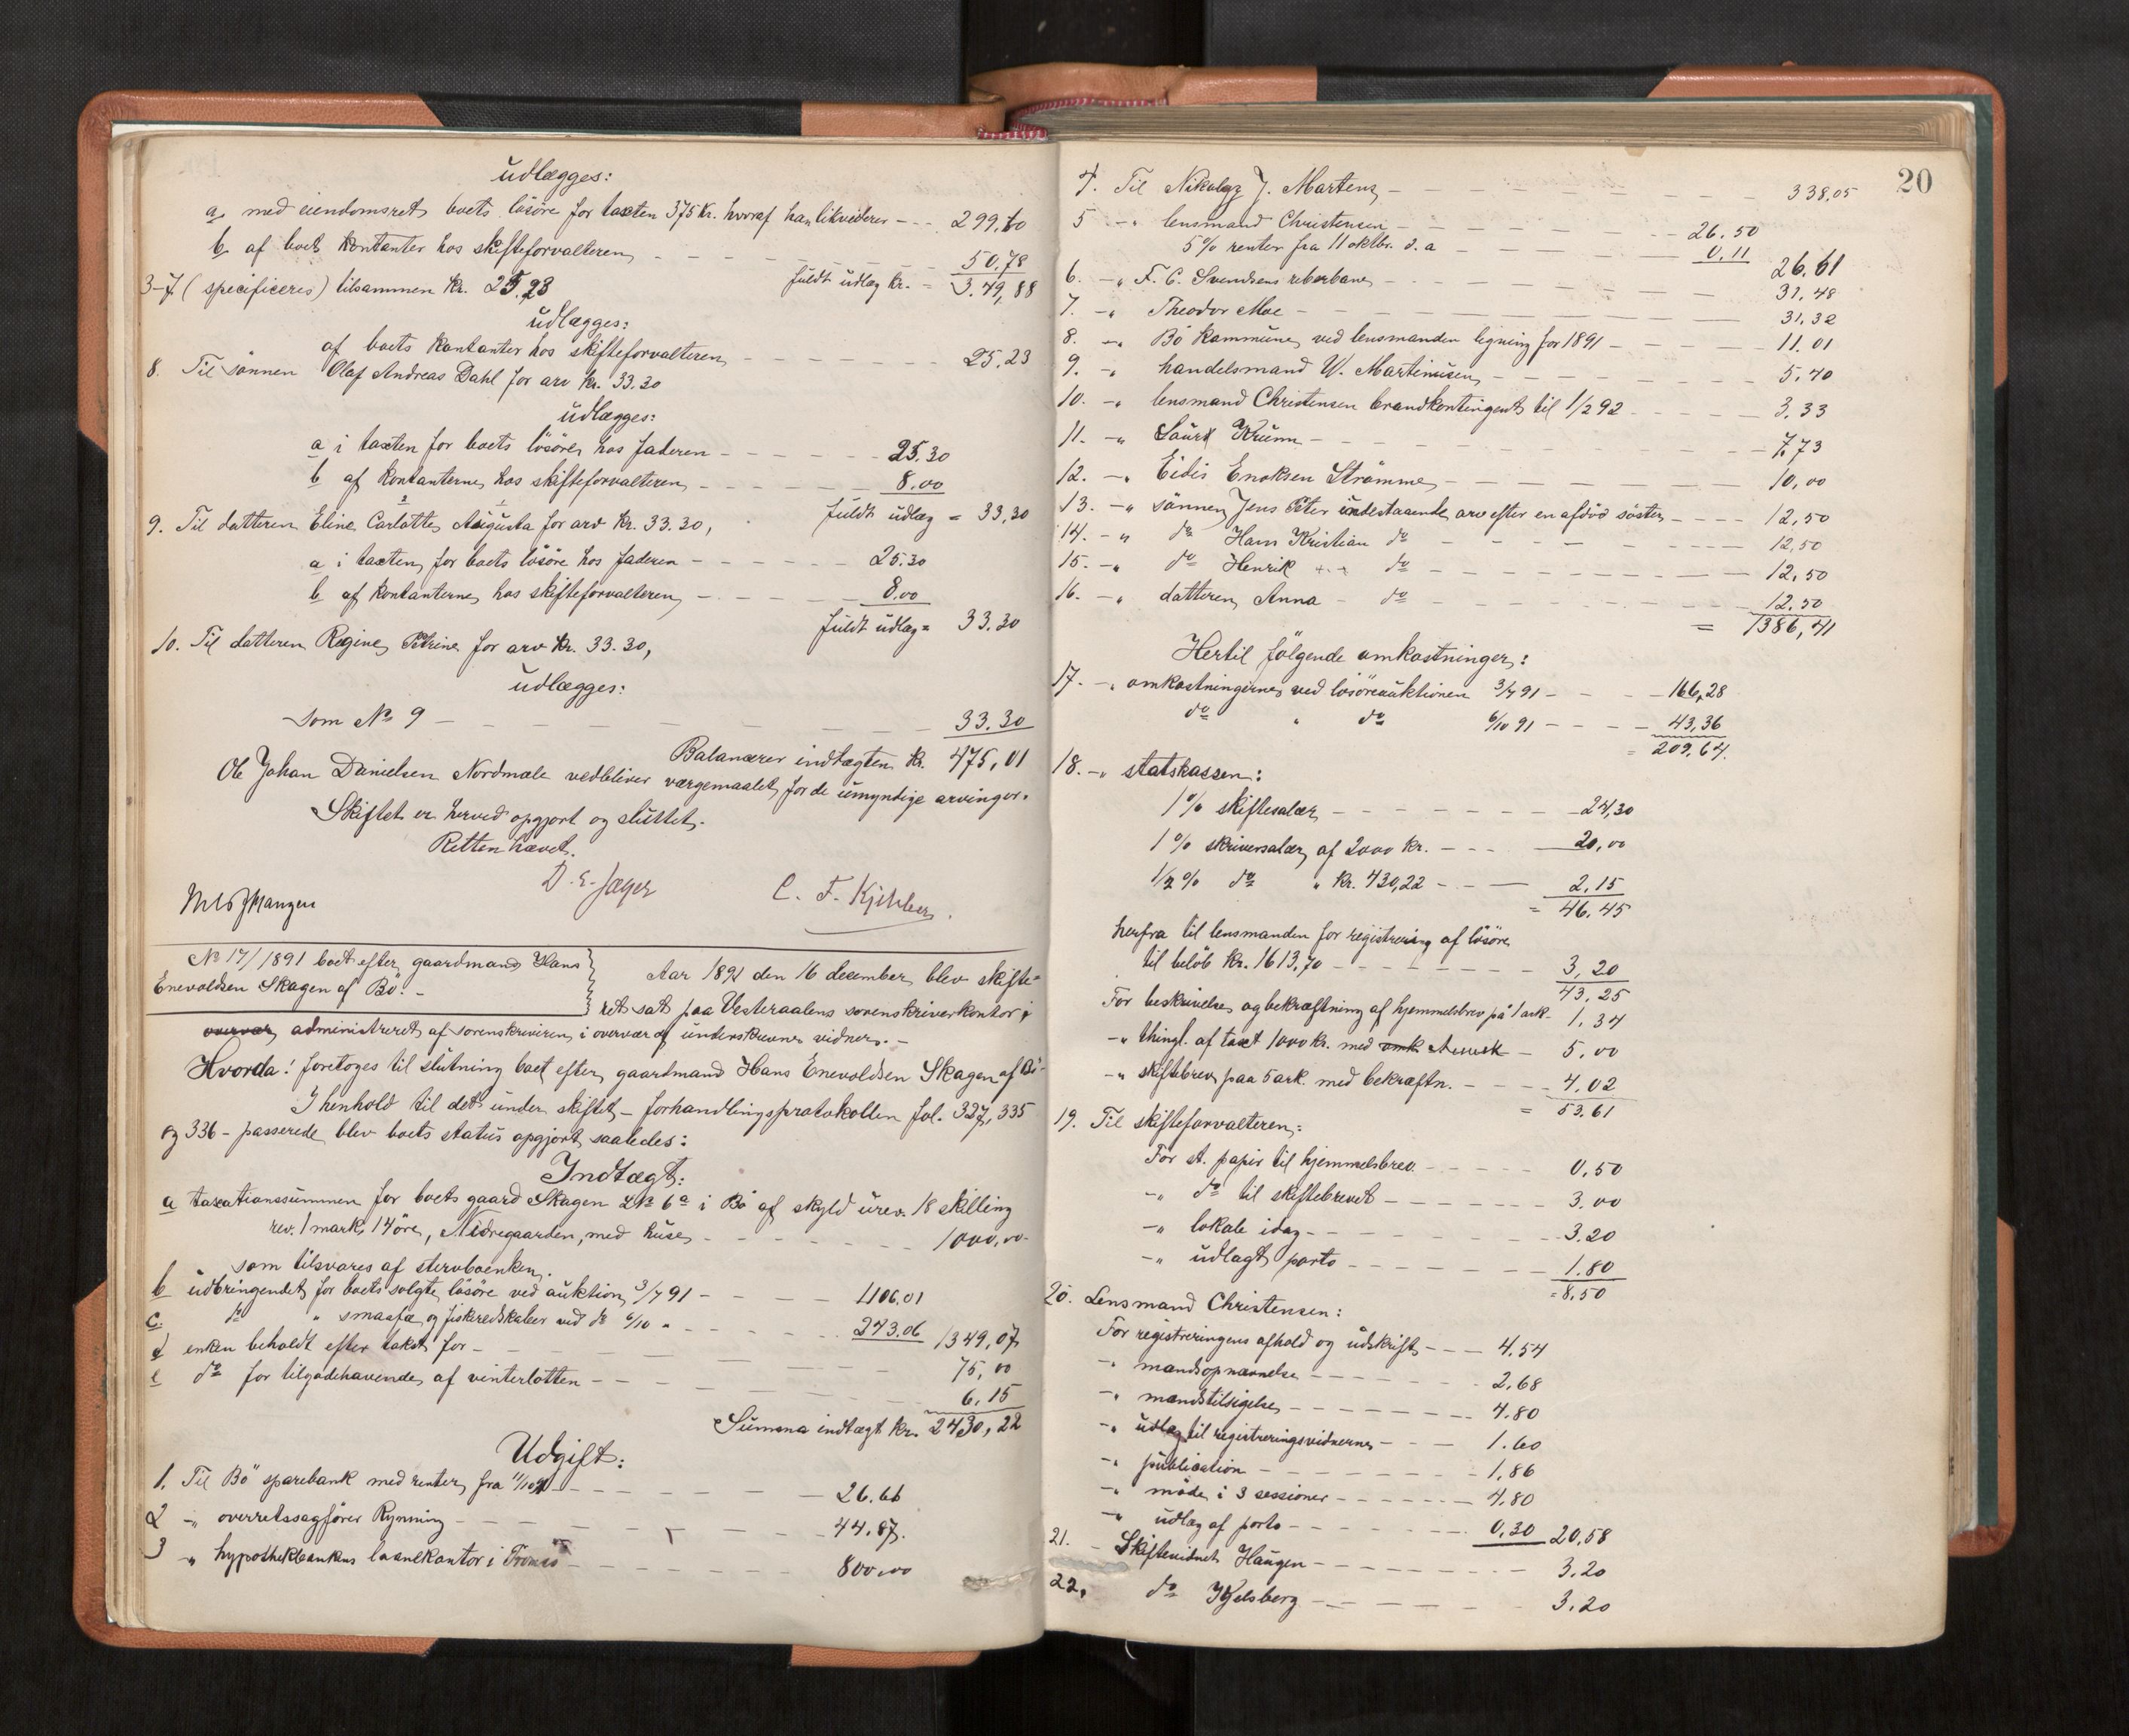 udlægges:
a, med eiendomsret boets løsøre for taxten 375 kr. hvoraf han likviderer - - - 299.10
b af boets kontanter hos skifteforvalteren - - - 50.78
fuldt udlæg kr. - 349,88
3-7 (specificeres) tilsammen kr. 25,23
udlægges:
af boets kontanter hos skifteforvalteren - - - 25,23
8. Til sønnen Olaf Andreas Dahl for arv kr. 33.30
udlægges:
a i taxten for boets løsøre hos faderen - - - 25.30
b af kontanterne hos skifteforvalteren - - - 8.00
fuldt udlæg = 33,30
9. Til datteren Eline Carlotte Augusta for arv kr. 33.30,
a i taxten for boets løsøre hos faderen - - - 25.30
b af kontanterne hos skifteforvalteren - - - 8.00
fuldt udlæg = 33.30
10. Til datteren Regine Petrine for arv kr. 33.30,
udlægges:
som No 9 - - - 33.30
Balancerer indtægten kr. 475,01
Ole Johan Danielsen Nordmæle vedbliver værgemaalet for de umyndige arvinger.
Skiftet er herved opgjort og sluttet.
Retten hævet.
D. E. Jæger
C. F. Kjelsberg.
No 17/1891 boet efter gaardmand Hans
Enevoldsen Skagen af Bø. -
Aar 1891 den 16 december blev skifte=
ret sat paa Vesteraalens sorenskriverkontor i
overvær administreret af sorenskriveren i overvær af underskrevne vidner. -
Hvorda: foretoges til slutning boet efter gaardmand Hans Enevoldsen Skagen af Bø -
I henhold til det under skiftet - forhandlingsprotokollen fol. 327, 335
og 336 - passerede blev boets status opgjort saaledes:
Indtægt:
a taxationssummen for boets gaard Skagen LNo 6a i Bø af skyld urev. 18 skilling
rev. 1 mark 14 øre, Nedregaarden, med huse - - - 1000,00
som tilsvares af stervboenken.
b udbringendet for boets solgte løsøre ved auktion 3/7 91 - - - 1106.01
c. do " smaafæ og fiskeredskaber ved do 6/10 " - - - 243.06 1349,07
d enken beholdt efter takst for - - - 75,00
e do for tilgodehavende af vinterlotten - - - 6.15
Summa indtægt kr. 2430,22
Udgift:
1. Til Bø sparebank med renter fra 11/10 91 - - - 26.66
2 -" overretssagfører Rynning - - - 44.87.
3 " hypothekbankens laanekontor i Tromsø - - - 800.00
20
4. Til Nikolay J. Martens - - - 338,05
5 -" lensmand Christensen - - - 26.50
5% renter fra 11 oktbr. d. a - - - 0.11 26,61
6. -" F. C. Svendsens reberbane - - - 31,48
7. -" Theodor Moe - - - 31,32
8. -" Bø kommune, ved lensmanden ligning for 1891 - - - 11.01
9. -" handelsmand W. Martinusen - - - 5,40
10. -" lensmand Christensen brandkontingent til 1/2 92 - - - 3,33
11. -" Krunn - - - 7,73
12. -" Eidis Enoksen Strømme - - - 10,00
13. -" sønnen Jens Peter indestaaende arv efter en afdød søster - - - 12,50
14. -" do Hans Kristian do - - - 12,50
15. -" do Henrik do - - - 12,50
16. -" datteren Anna - do - - - 12.50
= 1386,41
Hertil følgende omkostninger:
17. -" omkostningerne ved løsøreauktionen 3/7 91 - - - 166,28
do " do 6/10 91 - - - 43,36
= 209,64.
18. -" statskassen:
1% skiftesalær - - - 24,30
1% skriversalær af 2000 kr. - - - 20,00
1/2% do " kr. 430,22 - - - 2,15
= 46,45
herfra til lensmanden for registrering af løsøre
til beløb kr. 1613,70 - - - 3,20
43,25
For beskrivelse og bekræftning af hjemmelsbrev på 1 ark - 1,34
-" thingl. af taxt 1000 kr. med - 5,00
-" skiftebrev paa 5 ark. med bekræftn. - - - 4,02
= 53,61
19. Til skifteforvalteren:
For st. papir til hjemmelsbrev - - - 0,50
-" do til skiftebrevet - - - 3,00
-" lokale idag - - - 3.20
-" udlagt porto - - - 1.80
= 8,50
20. Lensmand Christensen:
For registreringens afhold og udskrift - - - 4,54
-" mandsopnævnelse - - - 2,68
-" mandstilsigelse - - - 4.80
-" udlæg til registreringsvidnerne - - - 1.60
-" publication - - - 1,86
-" møde i 3 sessioner - - - 4.80
-" udlæg af porto - - - 0,30 20,58
21. - Skiftevidnet Haugen - - - 3,20
22. do Kjelsberg - - - 3.20